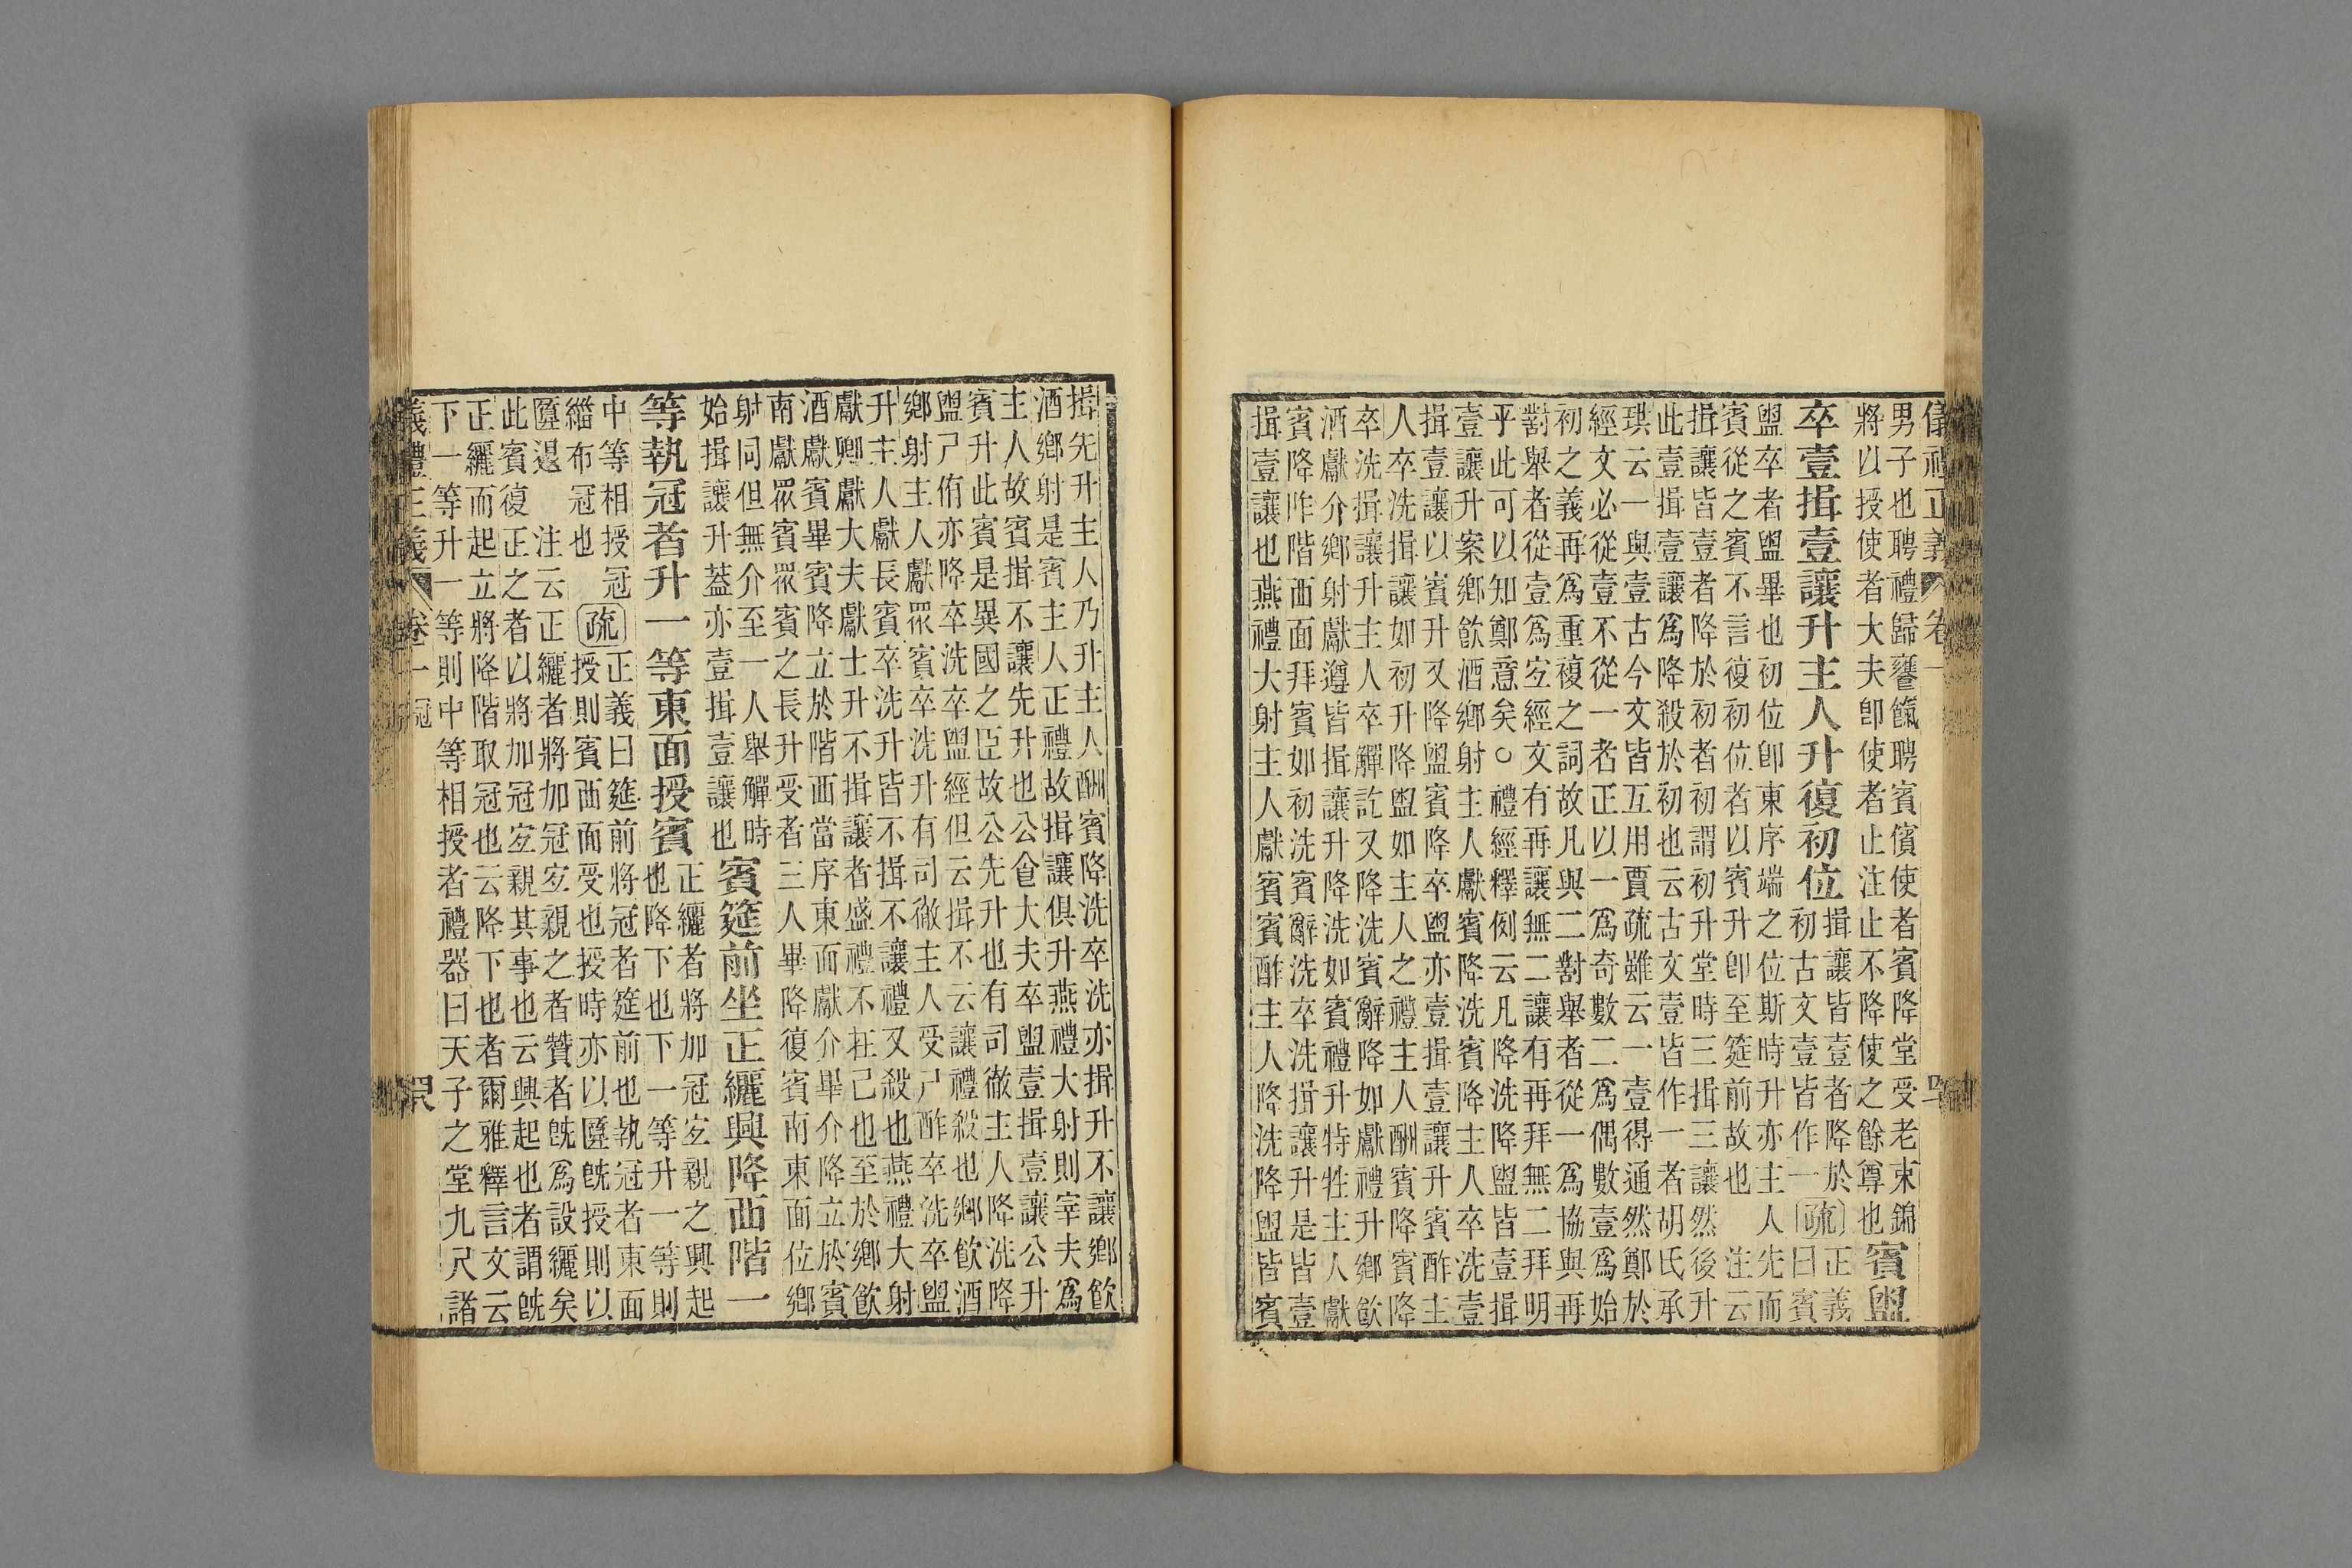 儀禮正義 卷一
男子也聘禮歸饔餼聘賓儐使者賓降堂受老束錦
將以授使者大夫卽使者止注止不降使之餘尊也
賓盥
卒壹揖壹讓升主人升復初位
揖讓皆壹者降於
初古文壹皆作一
疏
正義
曰賓
盥卒者盥畢也初位卽東序端之位斯時升亦主人先而
賓從之賓不言復初位者以賓升卽至筵前故也 注云
揖讓皆壹者降於初者初謂初升堂時三揖三讓然後升
此壹揖壹讓爲降殺於初也云古文壹皆作一者胡氏承
珙云一與壹古今文皆互用賈疏雖云一壹得通然鄭於
經文必從壹不從一者正以一爲奇數二爲偶數壹爲始
初之義再爲重複之詞故凡與二對舉者從一爲協與再
對舉者從壹爲安經文有再讓無二讓有再拜無二拜明
乎此可以知鄭意矣○禮經釋例云凡降洗降盥皆壹揖
壹讓升案鄉飮酒鄉射主人獻賓降洗賓降主人卒洗壹
揖壹讓以賓升又降盥賓降卒盥亦壹揖壹讓升賓酢主
人卒洗揖讓如初升降盥如主人之禮主人酬賓降賓降
卒洗揖讓升主人卒觶訖又降洗賓辭降如獻禮升鄉飮
酒獻介鄉射獻遵皆揖讓升降洗如賓禮升特牲主人獻
賓降阼階西面拜賓如初洗賓辭洗卒洗揖讓升是皆壹
揖壹讓也燕禮大射主人獻賓賓酢主人降洗降盥皆賓
揖先升主人乃升主人酬賓降洗卒洗亦揖升不讓鄉飮
酒鄉射是賓主人正禮故揖讓俱升燕禮大射則宰夫爲
主人故賓揖不讓先升也公食大夫卒盥壹揖壹讓公升
賓升此賓是異國之臣故公先升也有司徹主人降洗降
盥尸侑亦降卒洗卒盥經但云揖不云讓禮殺也鄉飮酒
鄉射主人獻眾賓卒洗升有司徹主人受尸酢卒洗卒盥
升主人獻長賓卒洗升皆不揖不讓禮又殺也燕禮大射
獻卿獻大夫獻士升不揖讓者盛禮不在己也至於鄉飮
酒獻賓畢賓降立於階西當序東面獻介畢介降立於賓
南獻眾賓眾賓之長升受者三人畢降復賓南東面位鄉
射同但無介至一人舉觶時
始揖讓升蓋亦壹揖壹讓也
賓筵前坐正纚興降西階一
等執冠者升一等東面授賓
正纚者將加冠宜親之興起
也降下也下一等升一等則
中等相授冠
緇布冠也
疏
正義曰筵前將冠者筵前也執冠者東面
授則賓西面受也授時亦以匴旣授則以
匴退 注云正纚者將加冠宜親之者贊者旣爲設纚矣
此賓復正之者以將加冠宜親其事也云興起也者謂旣
正纚而起立將降階取冠也云降下也者爾雅釋言文云
下一等升一等則中等相授者禮器曰天子之堂九尺諸
義禮正義 卷一 冠